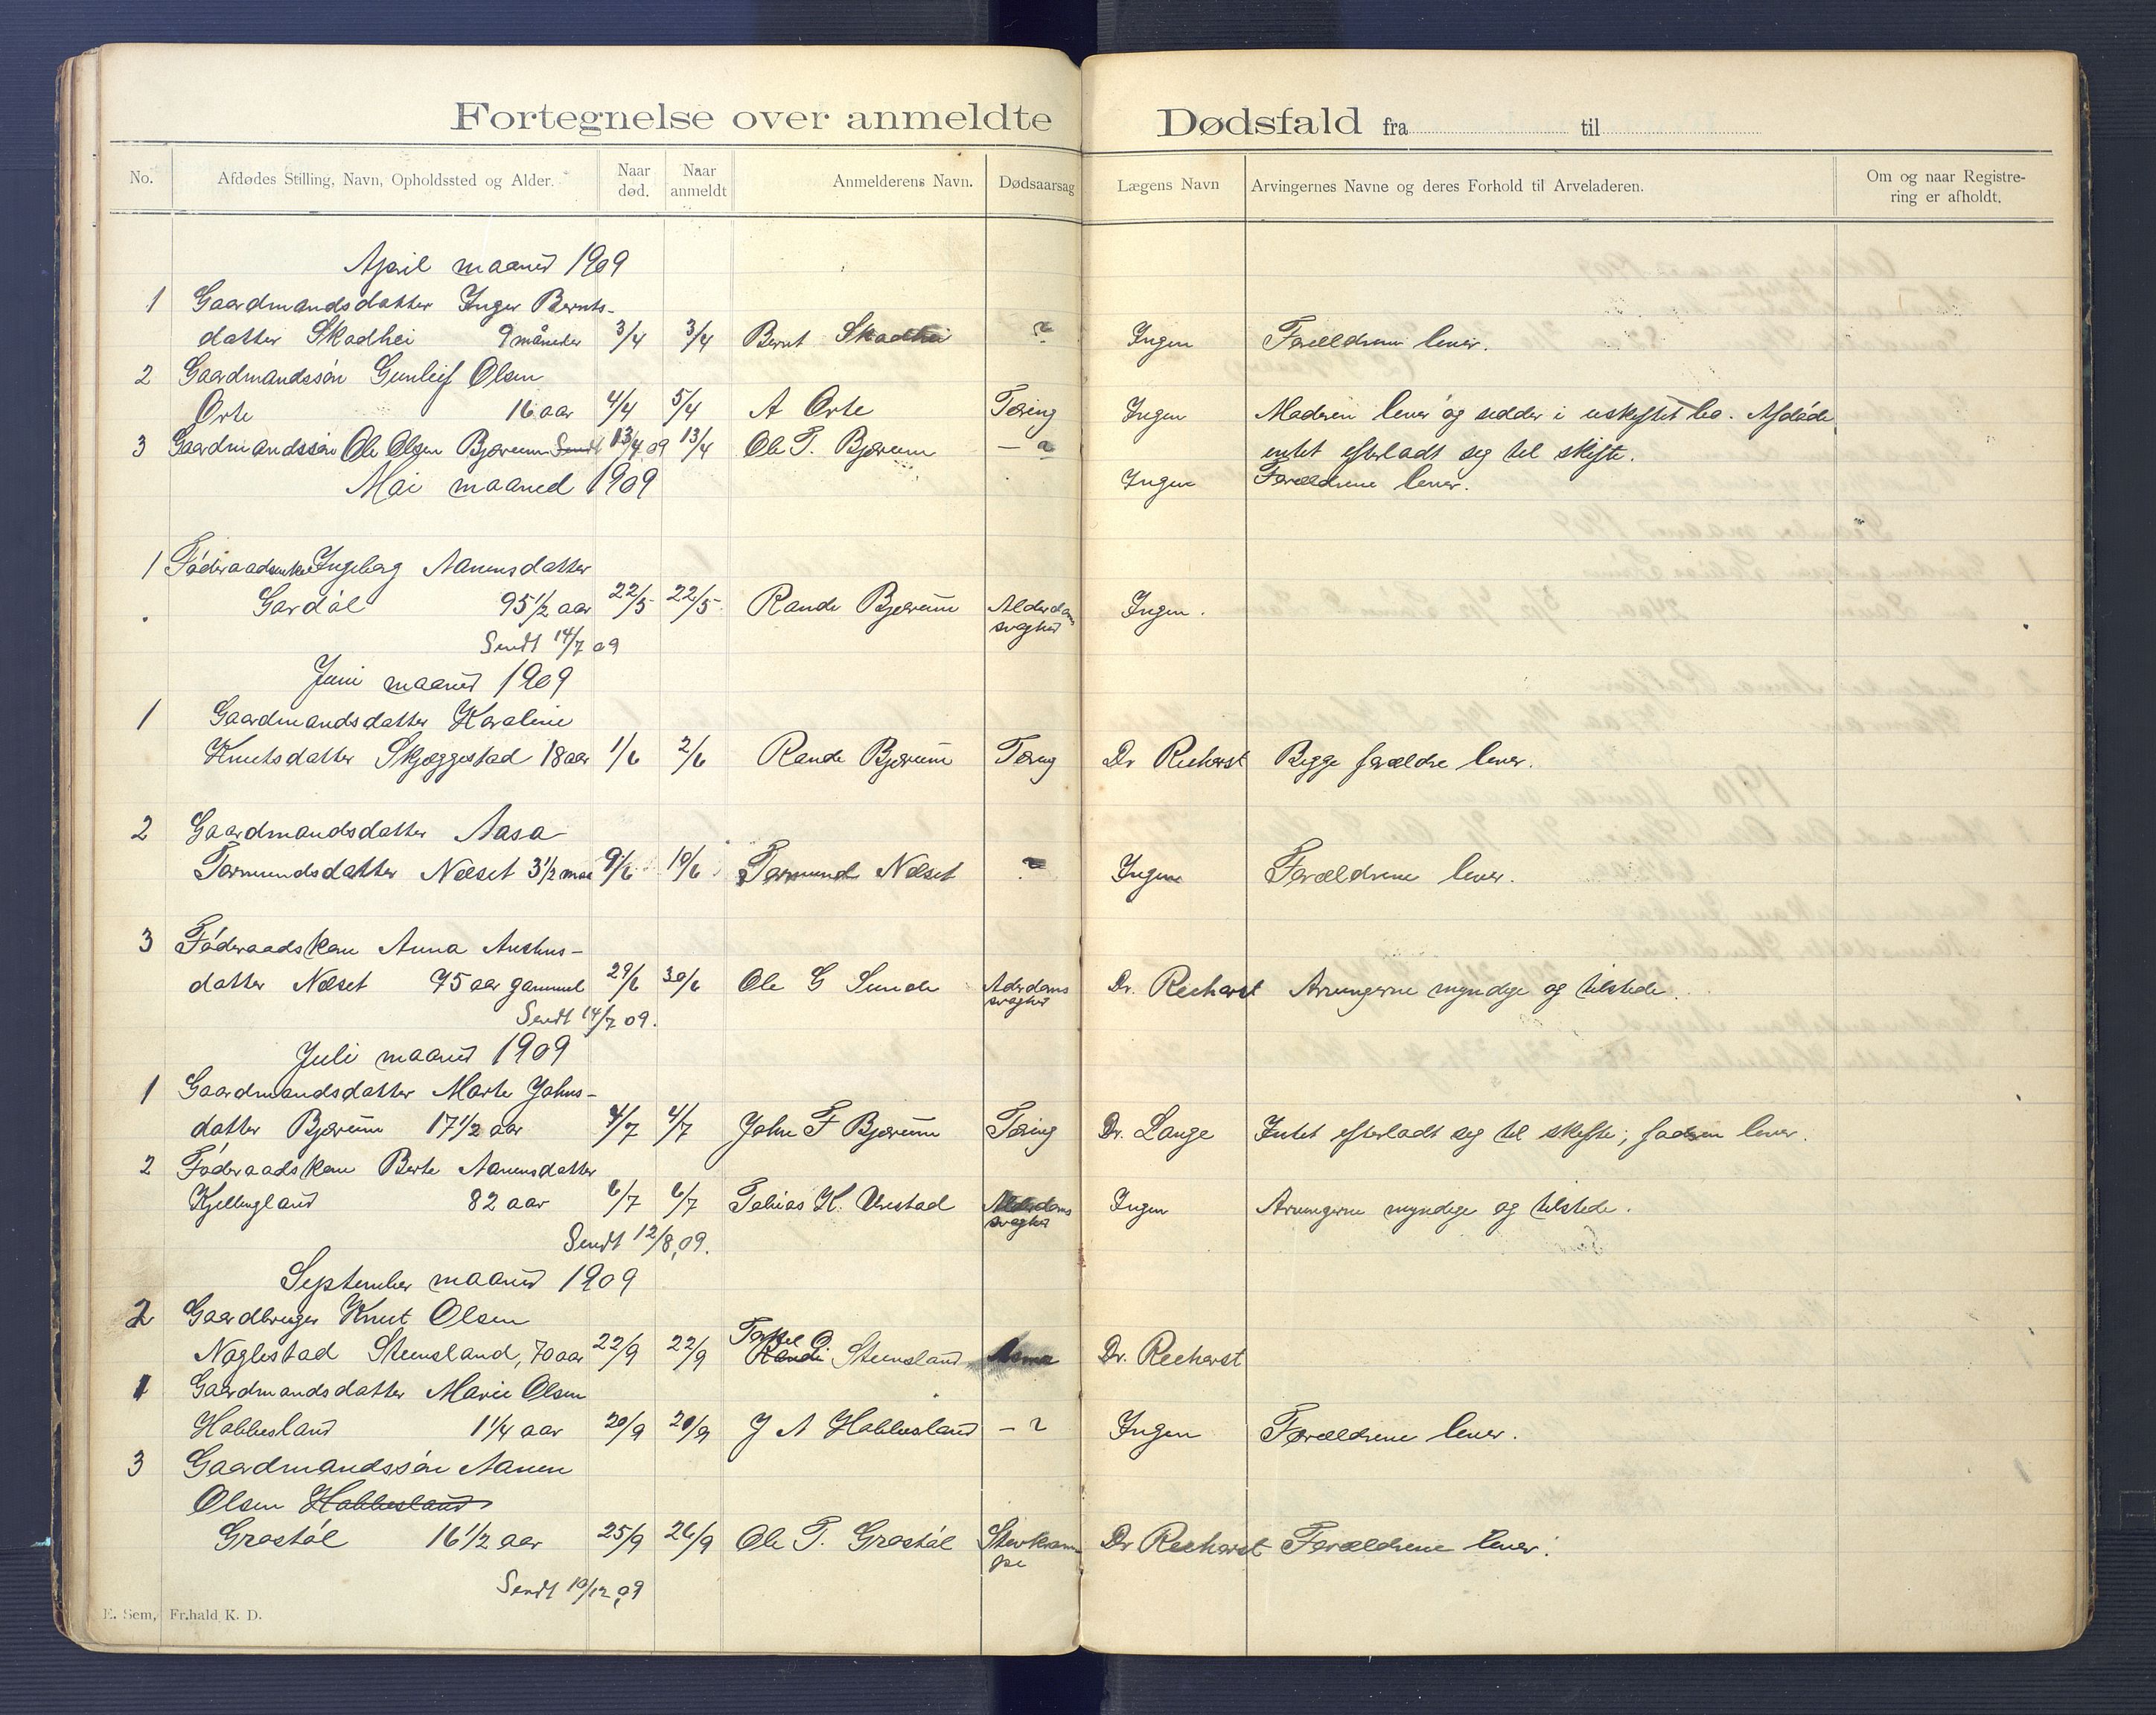 Fortegnelse over anmeldte Dødsfald fra til
No. Afdødes Stilling, Navn, Opholdssted og Alder. Naar død. Naar anmeldt Anmelderens Navn. Dødsaarsag Lægens Navn Arvingernes Navne og deres Forhold til Arveladeren. Om og naar Registrering er afholdt.
April maaned 1909
1 Gaardmandsdatter Inger Bernts-
datter Skadhei 9 måneder 3/4 3/4 Bernt Skadhei ? Ingen Forældrene lever.
2 Gaardmandssøn Gunleif Olsen
Orte 16 aar 4/4 5/4 A Orte Tæring Ingen Moderen lever og sidder i uskiftet bo. Afdøde
3 Gaardmandssøn Ole Olsen Bjærum Sendt 13/4 09 13/4 Ole T. Bjærum — ? intet efterladt seg til skifte.
Mai maaned 1909 Ingen Forældrene lever.
1 Føderaadsenke Ingeborg Aanensdatter
Gardøl 95 1/2 aar 22/5 22/5 Rande Bjærum Alderdoms Ingen.
svaghed
Sendt 14/7 09
Juni maaned 1909
1 Gaardmandsdatter Karoline
Knutsdatter Skjæggestad 18 aar 1/6 2/6 Rande Bjærum Tæring Dr Reehorst Begge forældre lever.
2 Gaardmandsdatter Aasa
Tormundsdatter Næset 3 1/2 9/6 10/6 Tormund Næset ? Ingen Forældrene lever.
3 Føderaadskone Anna
datter Næset 75 aar gammel 29/6 30/6 Ole G Sunde Alderdoms Dr. Reehorst Arvingerne myndige og tilstede.
svaghed
Sendt 14/7 09.
Juli maaned 1909
1 Gaardmandsdatter Marte Johns-
datter Bjærum 17 1/2 aar 4/7 4/7 John F Bjærum Tæring Dr. Lange Intet efterladt seg til skifte; faderen lever.
2 Føderaadskone Berte Aanensdatter
Kjellingland 82 aar 6/7 6/7 Tobias K. Urestad Alderdoms Ingen Arvingerne myndige og tilstede.
svaghed
Sendt 12/8,09.
September maaned 1909
2 Gaardbruger Knut Olsen
Noglestad Steensland, 70 aar 22/9 22/9 Randi Steensland Asma Dr. Reehorst
1 Gaardmandsdatter Marie Olsen
Hobbesland 1 1/4 aar 20/9 20/9 J A Hobbesland — ? Ingen Forældrene lever.
3 Gaardmandssøn Aanen
Olsen Hobbesland
Grostøl 16 1/2 aar 25/9 26/9 Ole T. Grostøl Dr Reehorst Forældrene lever.
Sendt 10/12,09
E. Sem, Fr.hald K. D.